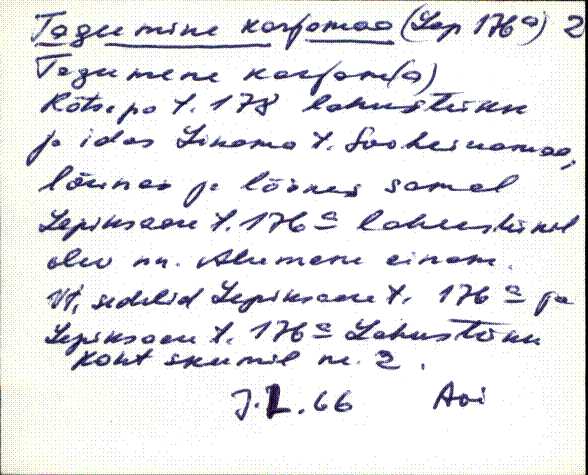 Tagumine karjamaa (Lep 176a) 2
Tagumene karjam(a)
Rätsepa t. 178 lahustükk
ja idas Linama t. Sooheinamaa,
lõunas ja läänes samal
Lepiksaare t. 176a lahustükil
olev nn. Alumene einam.
Vt. sedelid Lepiksaare t. 176a ja
Lepiksaare t. 176a Lahustükk
Koht skeemil nr. 2.
J.L.66 Avi